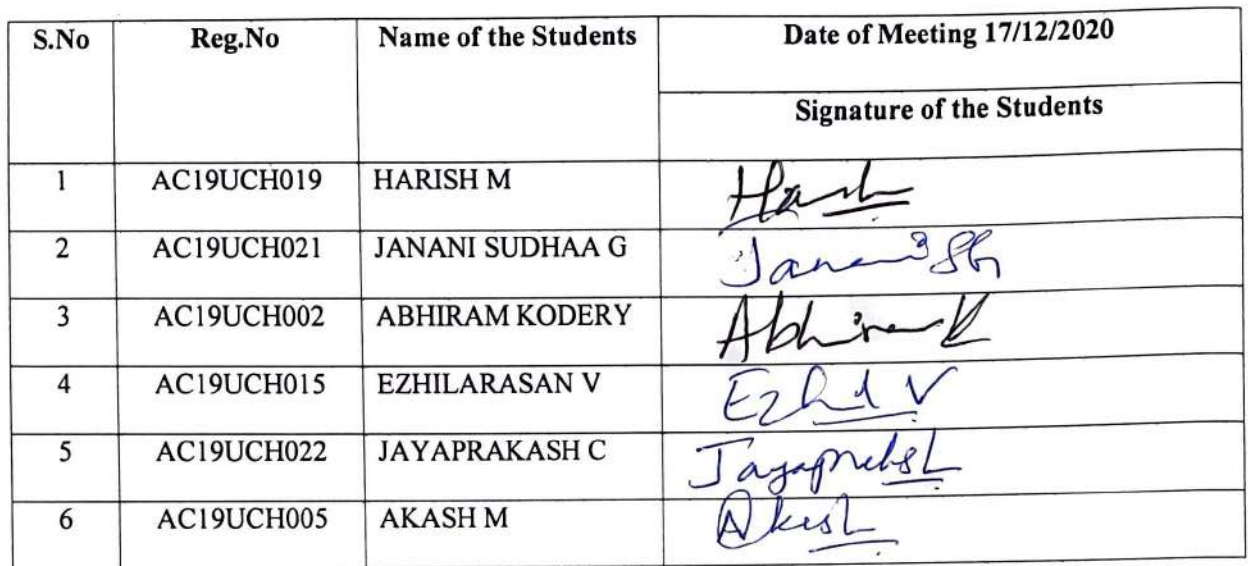 S.No Reg.No Name of the Students Date of Meeting 17/12/2020
Signature of the Students
1 AC19UCH019 HARISH M Harsh
2 AC19UCH021 JANANI SUDHAA G Janani
3 AC19UCH002 ABHIRAM KODERY Abhiram K
4 AC19UCH015 EZHILARASAN V Ezhil V
5 AC19UCH022 JAYAPRAKASH C
6 AC19UCH005 AKASH M Akash